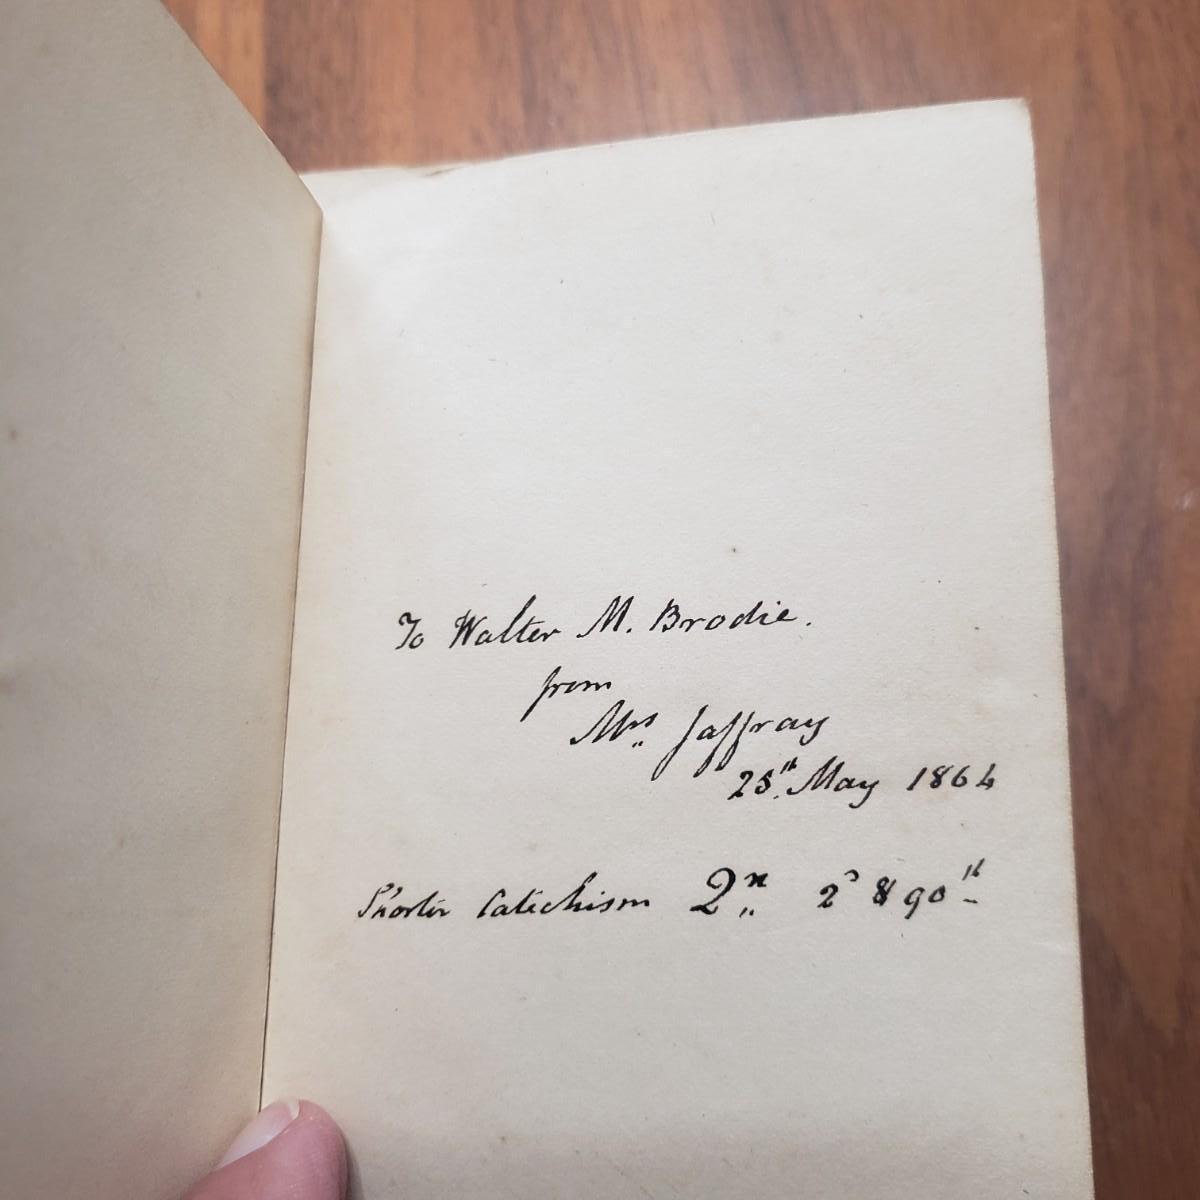 To Walter M. Brodie.
from
Mrs. Jaffray
25th. May 1864
Shorter Catechism Qn. 2d & 90th